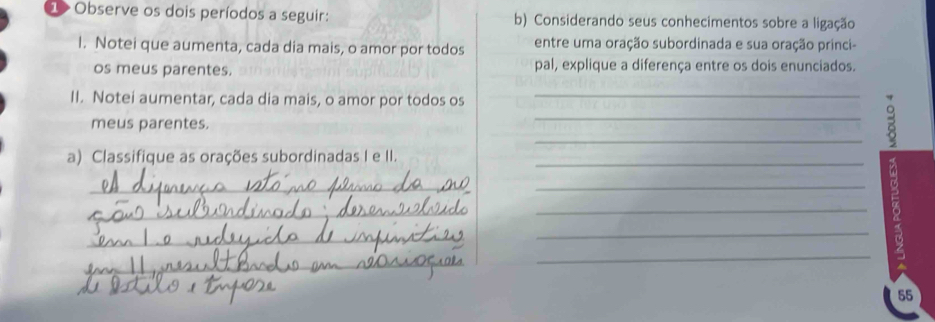 1 Observe os dois períodos a seguir:
I. Notei que aumenta, cada dia mais, o amor por todos
os meus parentes.
II. Notei aumentar, cada dia mais, o amor por todos os
meus parentes.
a) Classifique as orações subordinadas I e II.
A diferença está na forma da ora
ção subordinada: desenvolvida
em I e reduzida de infinitivo
em II, resultando em variações
de estilo e ênfase
b) Considerando seus conhecimentos sobre a ligação
entre uma oração subordinada e sua oração princi-
pal, explique a diferença entre os dois enunciados.
LÍNGUA PORTUGUESA MÓDULO 4
55